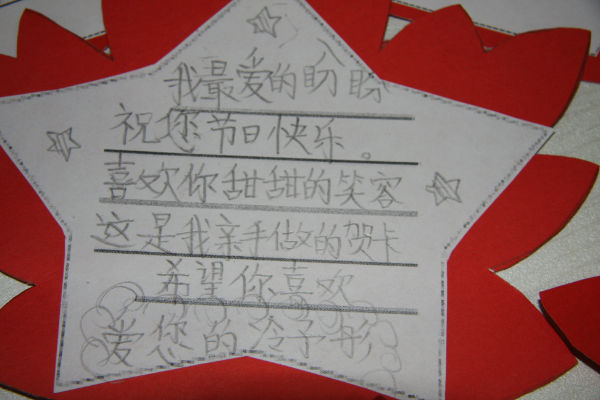 我最爱的盼盼
祝您节日快乐。
喜欢你甜甜的笑容
这是我亲手做的贺卡
希望你喜欢
爱您的冷予彤